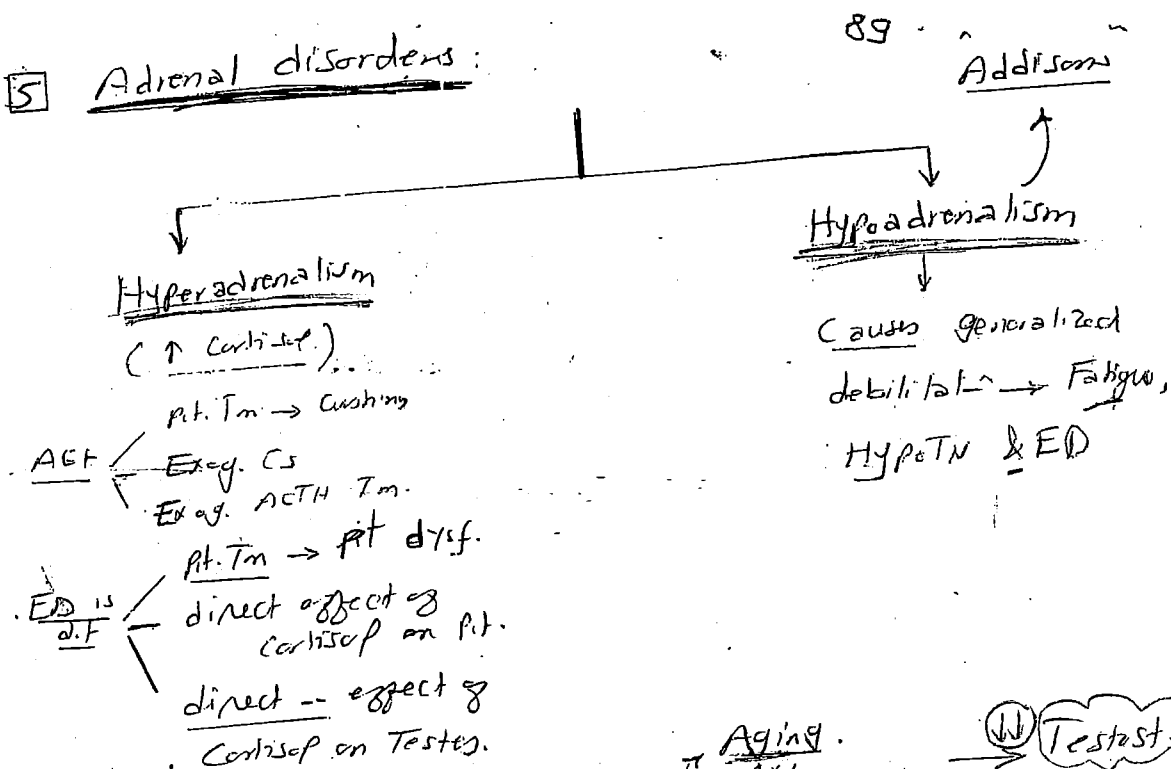 89
"Addison"
5 Adrenal disorders:
Hyperadrenalism
(↑ Cortisol)..
AEt
pit. Tm → Cushing
Exog. Cs
Exog. ACTH Tm.
ED is d.t
pit. Tm → pit dysf.
direct effect of
Cortisol on Pit.
direct -- effect of
Cortisol on Testes.
Hypoadrenalism
Causes generalized
debilitat^n → Fatigue,
HypoTN & ED
Aging.
→ ↓↓ Testost.